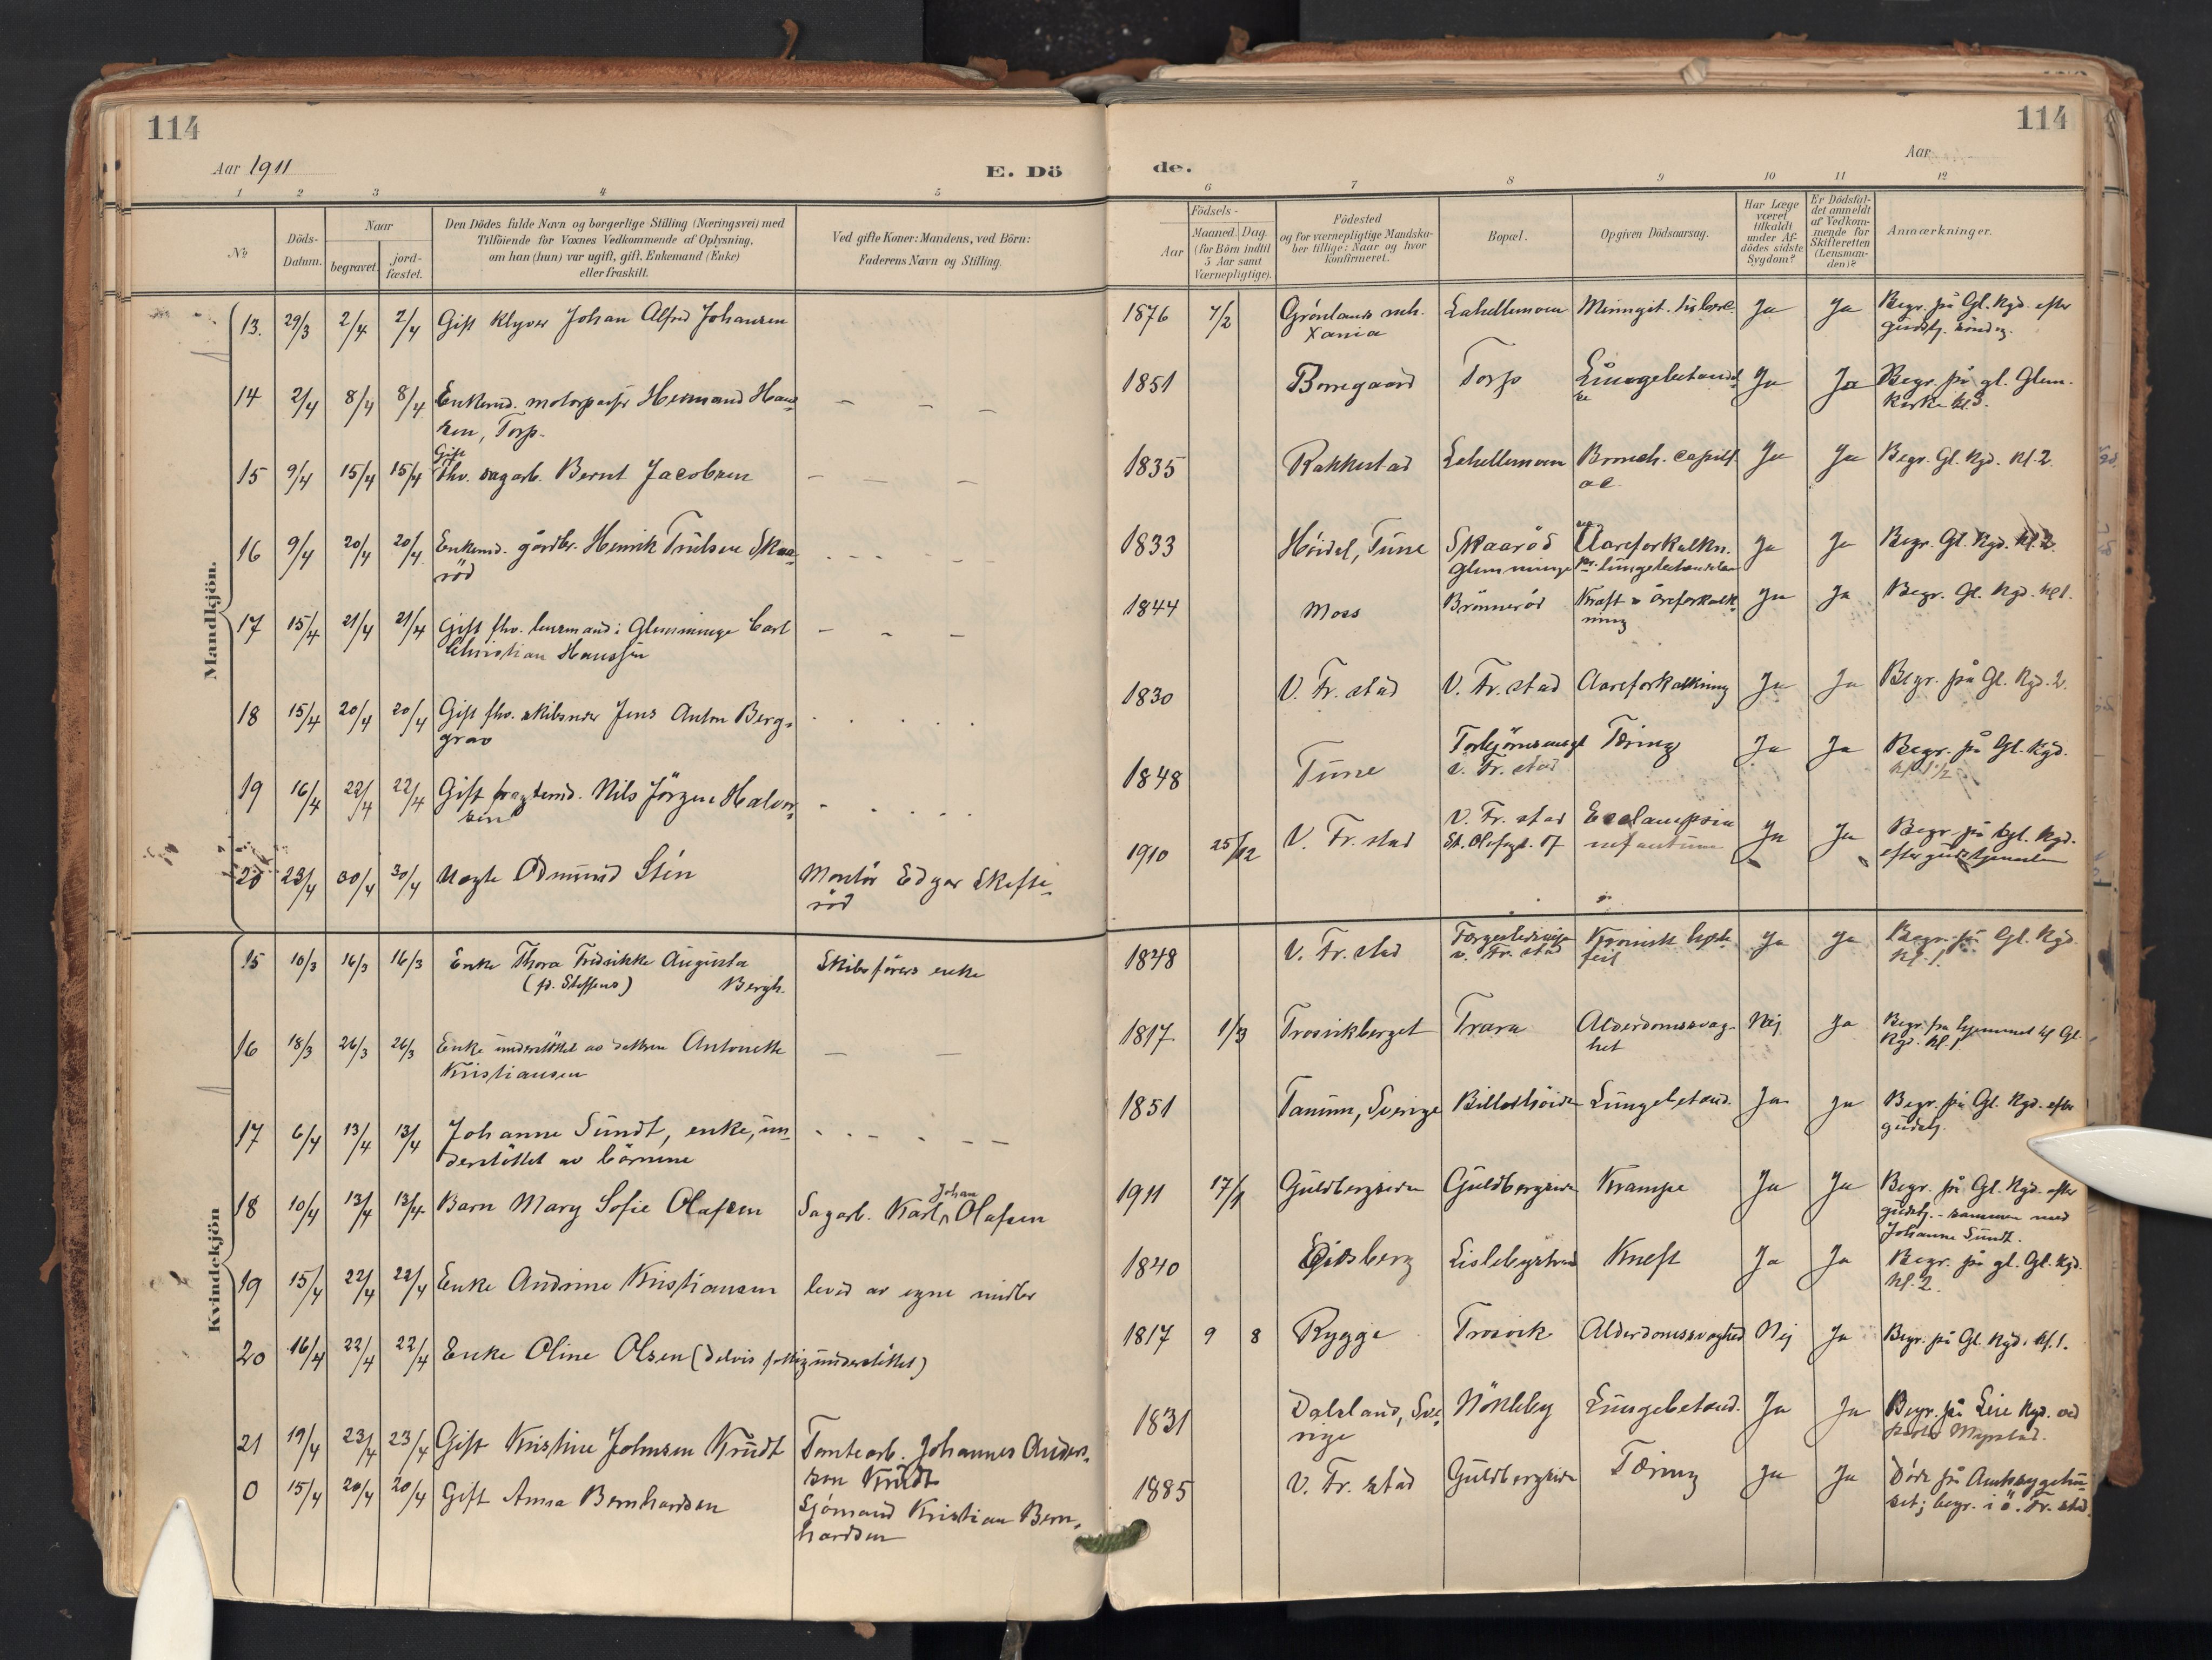 114
114
Aar 1911
E. Dö
de.
Aar
1 2 3 4 5 6 7 8 9 10 11 12
No
Döds-Datum.
Naar
begravet.
jord-fæstet.
Den Dödes fulde Navn og borgerlige Stilling (Næringsvei) med
Tilföiende for Voxnes Vedkommende af Oplysning,
om han (hun) var ugift, gift, Enkemand (Enke)
eller fraskilt.
Ved gifte Koner: Mandens, ved Börn:
Faderens Navn og Stilling.
Födsels-
Aar
Maaned. Dag.
(for Börn indtil
5 Aar samt
Værnepligtige).
Födested
og for værnepligtige Mandska-
ber tillige: Naar og hvor
konfirmeret.
Bopæl.
Opgiven Dödsaarsag.
Har Læge
været
tilkaldt
under Af-
dödes sidste
Sygdom?
Er Dödsfal-
det anmeldt
af Vedkom-
mende for
Skifteretten
(Lensman-
den)?
Anmærkninger.
Mandkjön.
13. 29/3 2/4 2/4 Gift Klyver Johan Alfred Johansen 1876 7/2 Grönlands meh. Lahellemoen Meningit. Ja Ja Begr. på Gl. Kgd. efter
Xania gudstj. söndag.
14 2/4 8/4 8/4 Enkemd. Hermand Han- — — — 1851 Borregaard Torp Lungebetændel- Ja Ja Begr. på gl. Glem.
sen, Torp. se Kirke kl. 3.
Gift
15 9/4 15/4 15/4 Fhv. sagarb. Bernt Jacobsen — — — 1835 Rakkestad Lahellemoen Bronch. capill Ja Ja Begr. Gl. Kgd. kl. 2.
16 9/4 20/4 20/4 Enkemd. gårdbr. Henrik Trulsen Skaa- 1833 Höidal, Tune Skaaröd Aareforkalkn. Ja Ja Begr. Gl. Kgd. kl. 2.
röd Glemminge lungebetændelse
17 15/4 21/4 21/4 Gift fhv. lensmand i Glemminge Carl — — — 1844 Moss Brönneröd Kræft & åreforkalk- Ja Ja Begr. Gl. Kgd. kl 1.
Christian Hanssen ning
18 15/4 20/4 20/4 Gift fhv. skibsreder Jens Anton Berg- 1830 V. Fr. stad V. Fr. stad Aareforkalkning Ja Ja Begr. på Gl. Kgd. 2.
grav
19 16/4 22/4 22/4 Gift fragtemd. Nils Jörgen Halvor- 1848 Tune Torbjörnsengt Tæring Ja Ja Begr. på Gl. Kgd.
sen v. Fr. stad
20 23/4 30/4 30/4 Uægte Odmund Stén Montör Edgar Skofte- 1910 25/12 V. Fr. stad V. Fr. stad Eclampsia Ja Ja Begr. på Gl. Kgd.
röd St. Olafsgt. 07 infantum efter gudstjenesten
Kvindekjön
15 10/3 16/3 16/3 Enke Thora Fredrikke Augusta Skibsförers enke 1848 V. Fr. stad Kronisk hjerte- Ja Ja Begr. på Gl. Kgd.
(f. Steffens) Bergh. v. Fr. stad feil kl. 1.
16 18/3 26/3 26/3 Enke understöttet av datteren Antonette — — 1817 1/3 Trosvikberget Trara Alderdomssvag- Nei Ja Begr. fra hjemmet til Gl.
Kristiansen het Kgd. kl. 1
17 6/4 13/4 13/4 Johanne Sundt, enke, un- 1851 Tanum, Sverige Lungebetænd. Ja Ja Begr. på Gl. Kgd. efter
derstöttet av börnene gudstj.
18 10/4 13/4 13/4 Barn Mary Sofie Olafsen Sagarb. Karl Johan Olafsen 1911 17/1 Guldbergsiden Guldbergsiden Krampe Ja Ja Begr. på Gl. Kgd. efter
gudstj. - sammen med
Johanne Sundt.
19 15/4 22/4 22/4 Enke Andrine Kristiansen leved av egne midler 1840 Eidsberg Lislebystrand Kræft Ja Ja Begr. på gl. Gl. Kgd.
kl. 2.
20 16/4 22/4 22/4 Enke Oline Olsen (delvis fattigunderstöttet) 1817 9 8 Rygge Trosvik Alderdomssvaghed Nei Ja Begr. på Gl. Kgd. kl. 1.
21 19/4 23/4 23/4 Gift Kristine Johnsen Krudt Tomtearb. Johannes Anders- 1831 Dalsland, Sve- Nökleby Lungebetænd. Ja Ja Begr. på Leie Kgd. ved
sen Krudt rige
0 15/4 20/4 20/4 Gift Anna Bernhardsen Sjömand Kristian Bern- 1885 V. Fr. stad Guldbergsiden Tæring Ja Ja Döde på Amtssygehu-
hardsen set; begr. i ö. Fr. stad.